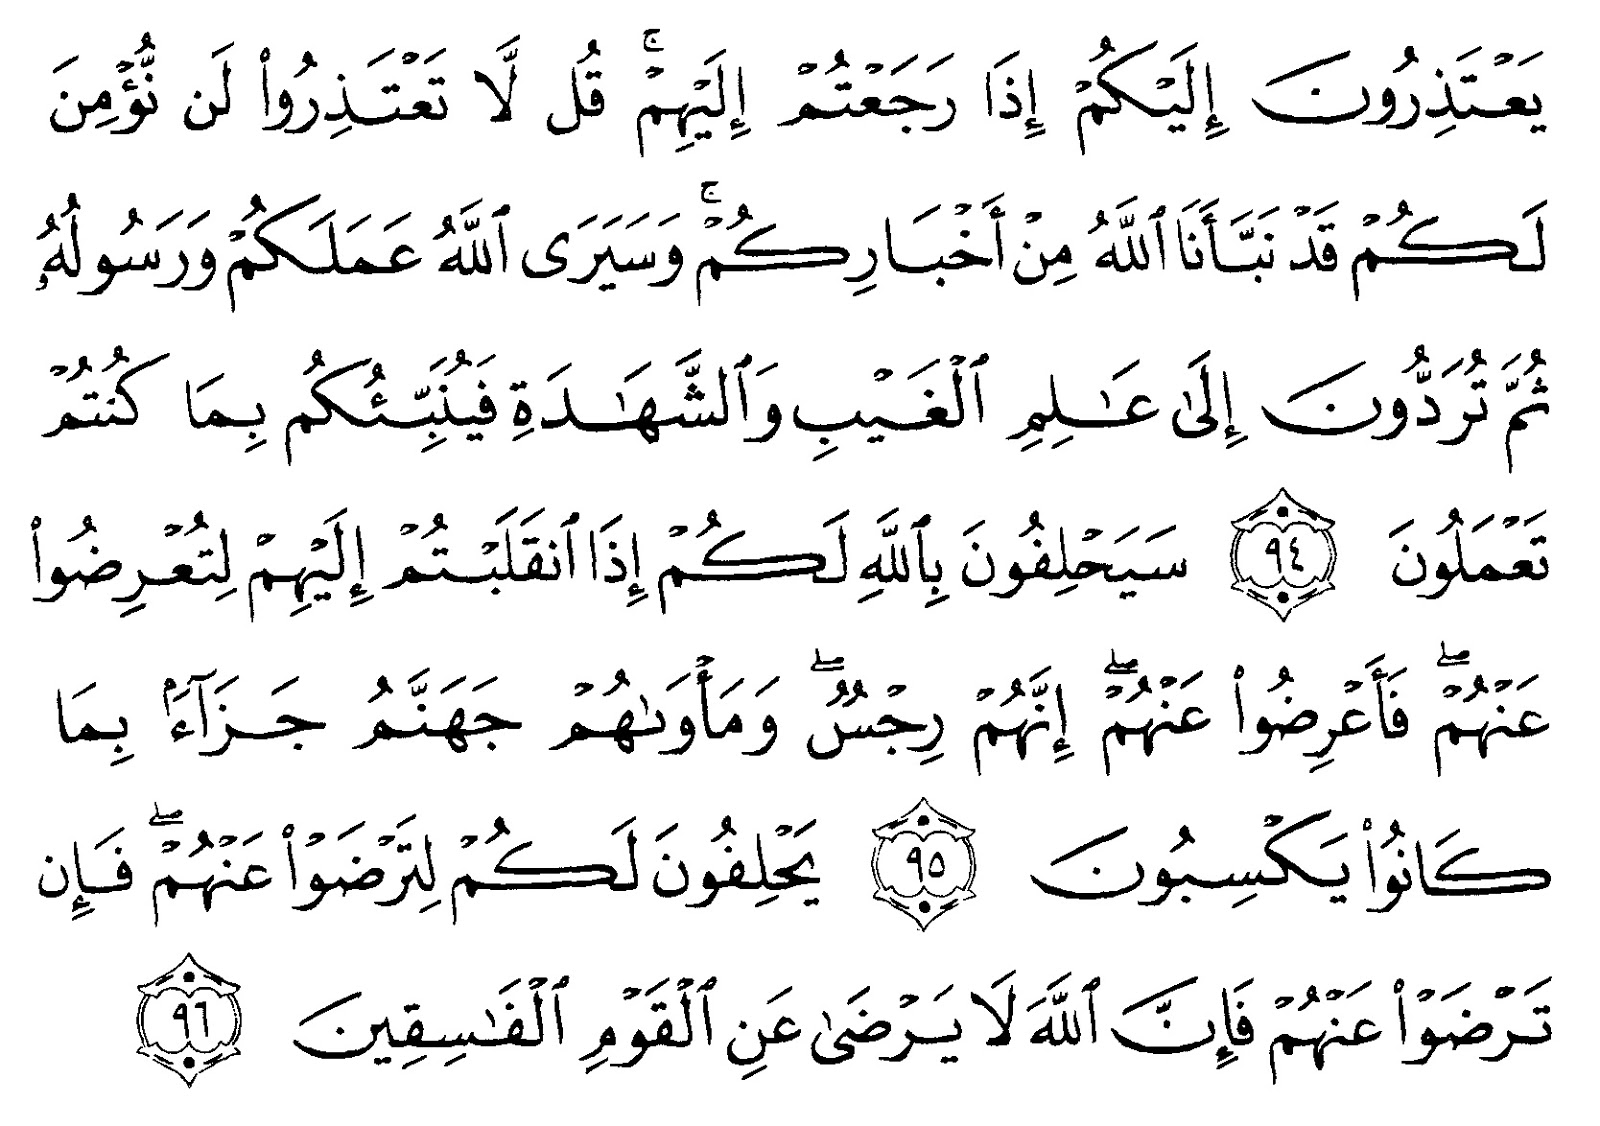 يَعْتَذِرُونَ إِلَيْكُمْ إِذَا رَجَعْتُمْ إِلَيْهِمْ ۚ قُل لَّا تَعْتَذِرُوا۟ لَن نُّؤْمِنَ
لَكُمْ قَدْ نَبَّأَنَا ٱللَّهُ مِنْ أَخْبَارِكُمْ ۚ وَسَيَرَى ٱللَّهُ عَمَلَكُمْ وَرَسُولُهُۥ
ثُمَّ تُرَدُّونَ إِلَىٰ عَـٰلِمِ ٱلْغَيْبِ وَٱلشَّهَـٰدَةِ فَيُنَبِّئُكُم بِمَا كُنتُمْ
تَعْمَلُونَ ٩٤ سَيَحْلِفُونَ بِٱللَّهِ لَكُمْ إِذَا ٱنقَلَبْتُمْ إِلَيْهِمْ لِتُعْرِضُوا۟
عَنْهُمْ ۖ فَأَعْرِضُوا۟ عَنْهُمْ ۖ إِنَّهُمْ رِجْسٌ ۖ وَمَأْوَىٰهُمْ جَهَنَّمُ جَزَآءًۢ بِمَا
كَانُوا۟ يَكْسِبُونَ ٩٥ يَحْلِفُونَ لَكُمْ لِتَرْضَوْا۟ عَنْهُمْ ۖ فَإِن
تَرْضَوْا۟ عَنْهُمْ فَإِنَّ ٱللَّهَ لَا يَرْضَىٰ عَنِ ٱلْقَوْمِ ٱلْفَـٰسِقِينَ ٩٦